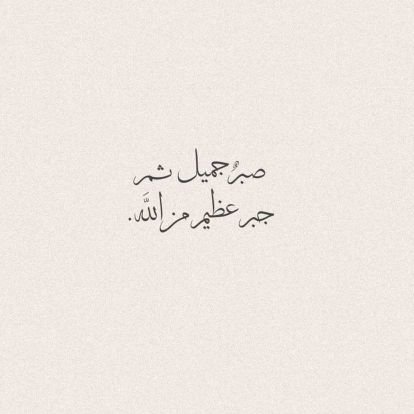 صبرٌ جميل ثم
جبر عظيم من اللَّه.